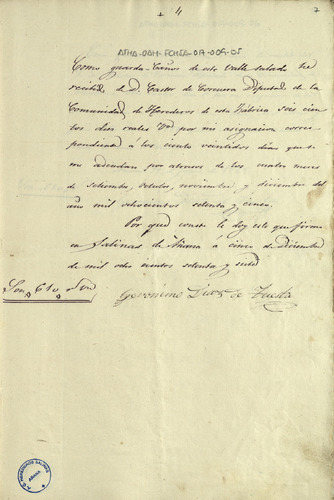 4
7
ATHA-DAH-FCHSA-017-009-01
Como guarda-caños de este Valle salado he
recibido de D. Castor de Corcuera Diputado de la
Comunidad de Herederos de esta Fábrica seis cien
tos diez reales Vn por mi asignacion corres
pondiente a los ciento veintidos dias que se
me adeudan por atrasos de los cuatro meses
de setiembre, octubre, noviembre, y diciembre del
año mil ochocientos setenta y cinco.
Por que conste le doy este que firmo
en Salinas de Añana a cinco de Diciembre
de mil ocho cientos setenta y siete
Son, 610, r Vn
Geronimo Diaz de Tuesta
AÑANA